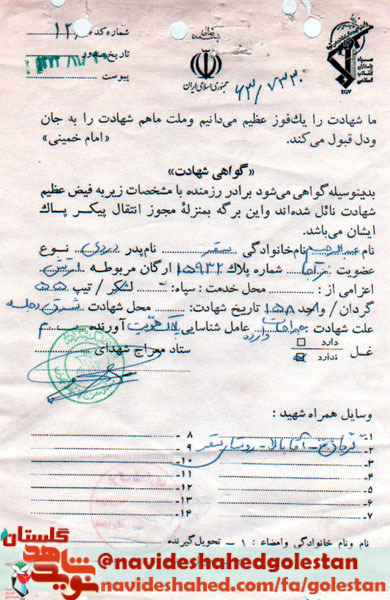 شماره کد
تاریخ صدور
پیوست
جمهوری اسلامی ایران
۶۳/۷۳۳۰
ما شهادت را یك‌فوز عظیم می‌دانیم وملت ماهم شهادت را به جان
ودل قبول می‌کند. «امام خمینی»
«گواهی شهادت»
بدینوسیله گواهی می‌شود برادر رزمنده با مشخصات زیر به فیض عظیم
شهادت نائل شده‌اند واین برگه بمنزلهٔ مجوز انتقال پیکر پاك
ایشان می‌باشد.
نام عبدالرحیم نام‌خانوادگی سنقر نام‌پدر نوع
عضویت شماره پلاك ۱۵۹۳۲ ارگان مربوطه ارتش
اعزامی از: محل خدمت: سپاه: لشکر/ تیپ ۵۵
گردان/ واحد ۱۵۸ تاریخ شهادت: محل شهادت شرق دجله
علت شهادت: جراحات وارده عامل شناسایی پلاك هویت آورنده
غسل دارد ندارد ستاد معراج شهدای
وسایل همراه شهید:
۱-
۲-
۳-
۴-
۵-
۶-
۷-
۸-
۹-
۱۰-
۱۱-
۱۲-
۱۳-
۱۴-
نام ونام خانوادگی وامضاء: ۱- تحویل‌گیرنده
نوید شاهد گلستان
@navideshahedgolestan
navideshahed.com/fa/golestan